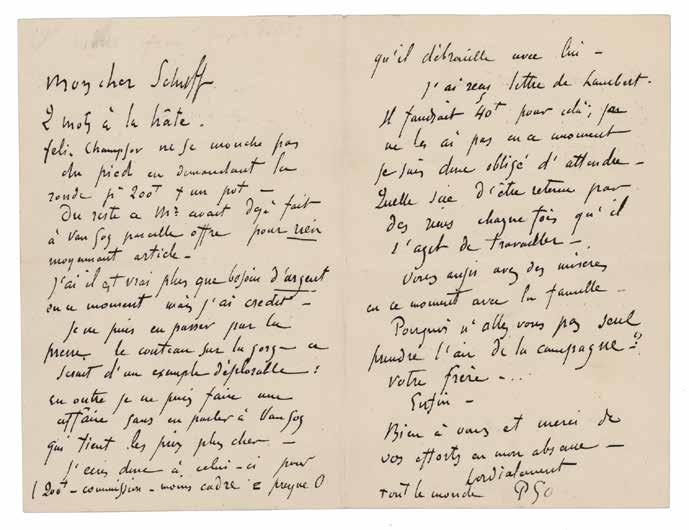 Mon cher Schuff
2 mots à la hâte.
Felix Champsor ne se mouche pas
du pied en demandant la
ronde pr 200f + un pot —
Du reste ce Mr avait déjà fait
à Van Gog pareille offre pour rien
moyennant article —
J'ai il est vrai plus que besoin d'argent
en ce moment mais j'ai credit —
Je ne puis en passer par la
presse le couteau sur la gorge ce
serait d'un exemple déplorable :
en outre je ne puis faire une
affaire sans en parler à Van Gog
qui tient les prix plus cher —
J'ecris donc à celui-ci pour
( 200f — commission — moins cadre = presque 0
qu'il débrouille avec lui —
J'ai reçu lettre de Lambert.
Il faudrait 40f pour celà ; je
ne les ai pas en ce moment
je suis donc obligé d'attendre —
Quelle scie d'être retenu par
des riens chaque fois qu'il
s'agit de travailler —.
Vous aussi avez des misères
en ce moment avec la famille —
Pourquoi n'allez vous pas seul
prendre l'air de la campagne ?
votre frère —...
Enfin —
Bien à vous et merci de
vos efforts en mon absence —
Cordialement
tout le monde PGo